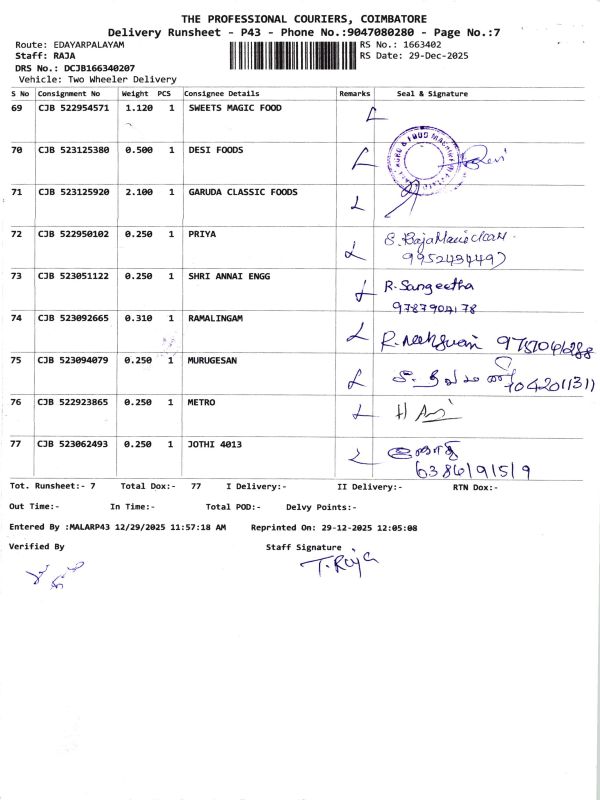 THE PROFESSIONAL COURIERS, COIMBATORE
Delivery Runsheet - P43 - Phone No.:9047080280 - Page No.:7
Route: EDAYARPALAYAM RS No.: 1663402
Staff: RAJA RS Date: 29-Dec-2025
DRS No.: DCJB166340207
Vehicle: Two Wheeler Delivery
S No Consignment No Weight PCS Consignee Details Remarks Seal & Signature
69 CJB 522954571 1.120 1 SWEETS MAGIC FOOD
70 CJB 523125380 0.500 1 DESI FOODS
71 CJB 523125920 2.100 1 GARUDA CLASSIC FOODS
72 CJB 522950102 0.250 1 PRIYA
73 CJB 523051122 0.250 1 SHRI ANNAI ENGG R. Sangeetha
9787904178
74 CJB 523092665 0.310 1 RAMALINGAM
75 CJB 523094079 0.250 1 MURUGESAN
76 CJB 522923865 0.250 1 METRO
77 CJB 523062493 0.250 1 JOTHI 4013
Tot. Runsheet:- 7 Total Dox:- 77 I Delivery:- II Delivery:- RTN Dox:-
Out Time:- In Time:- Total POD:- Delvy Points:-
Entered By :MALARP43 12/29/2025 11:57:18 AM Reprinted On: 29-12-2025 12:05:08
Verified By Staff Signature
T. Raja